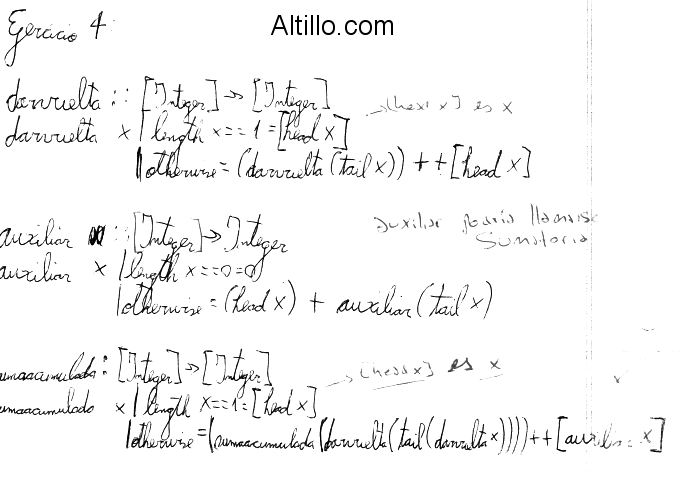 Altillo.com
Ejercicio 4
darvuelta :: [Integer] -> [Integer]
-> [head x] es x
darvuelta x | length x == 1 = [head x]
| otherwise = (darvuelta (tail x)) ++ [head x]
auxiliar :: [Integer] -> Integer
auxiliar podría llamarse
Sumatoria
auxiliar x | length x == 0 = 0
| otherwise = (head x) + auxiliar (tail x)
umaacumulada : [Integer] -> [Integer]
-> [head x] es x
umaacumulado x | length x == 1 = [head x]
| otherwise = (sumaacumulada (darvuelta (tail (darvuelta x)))) ++ [auxiliar x]